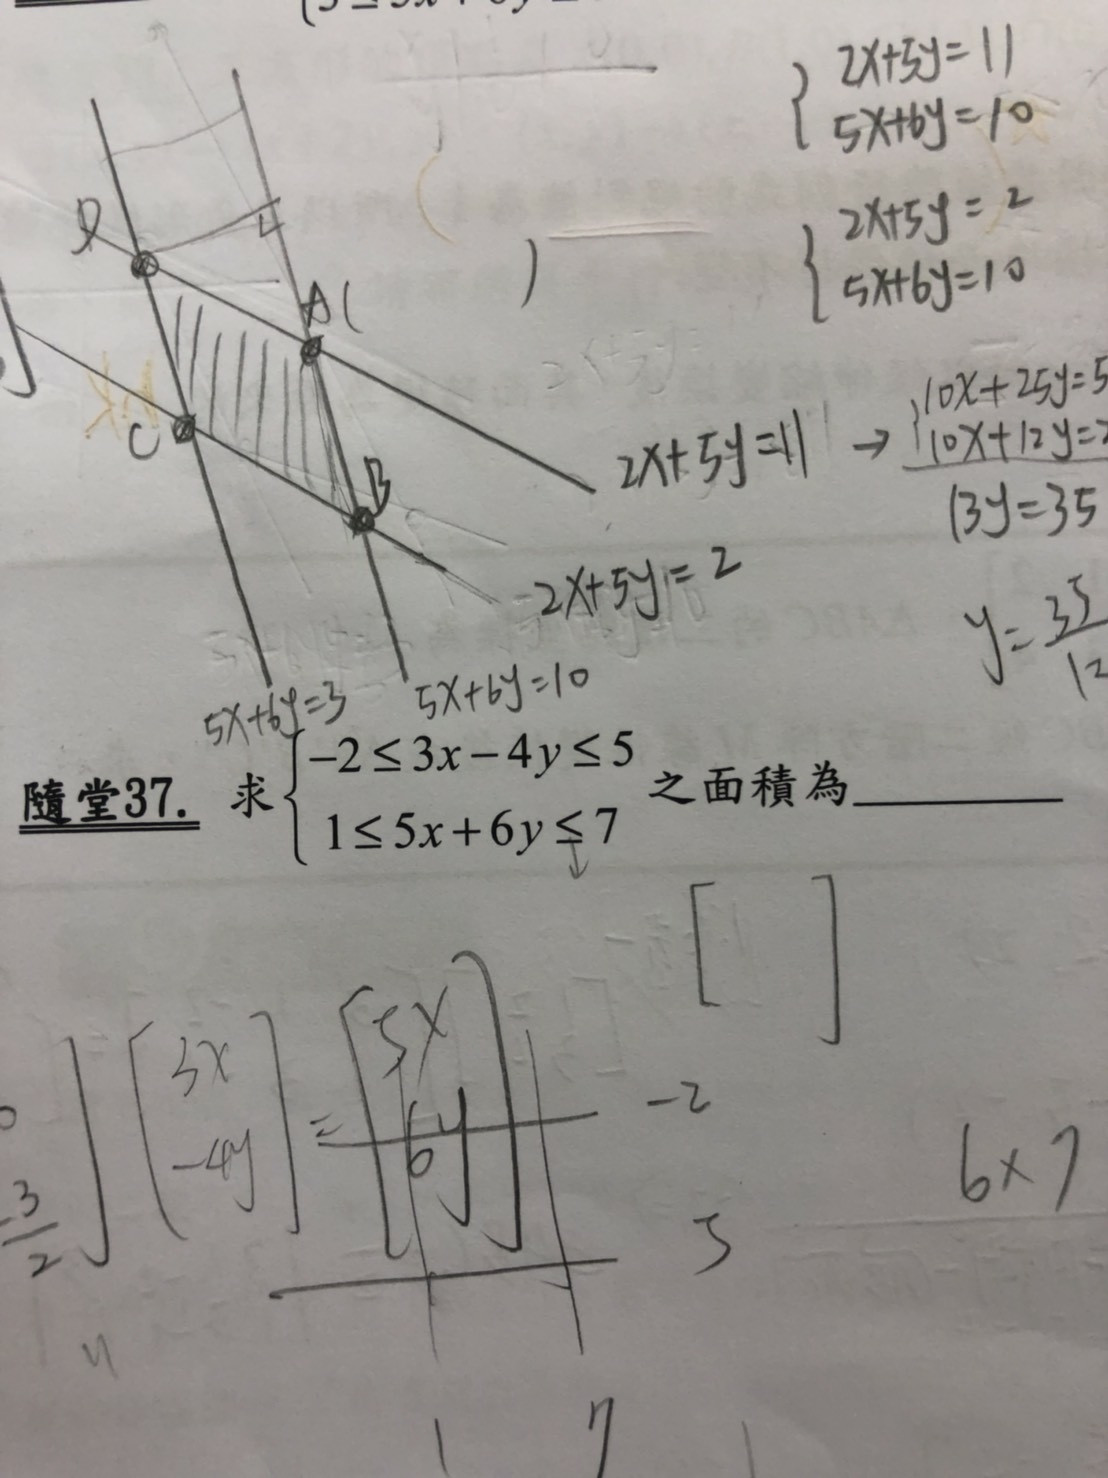 2x+5y=11
5x+6y=10
2x+5y=2
5x+6y=10
D
A(
)
C
B
2x+5y=11 → 10x+25y=5
10x+12y=2
13y=35
2x+5y=2
y=35/12
5x+6y=3
5x+6y=10
隨堂37. 求 -2≤3x-4y≤5 之面積為
1≤5x+6y≤7
[ ]
3x = 5x
-4y 6y
-2
6×7
3/2
5
1 7